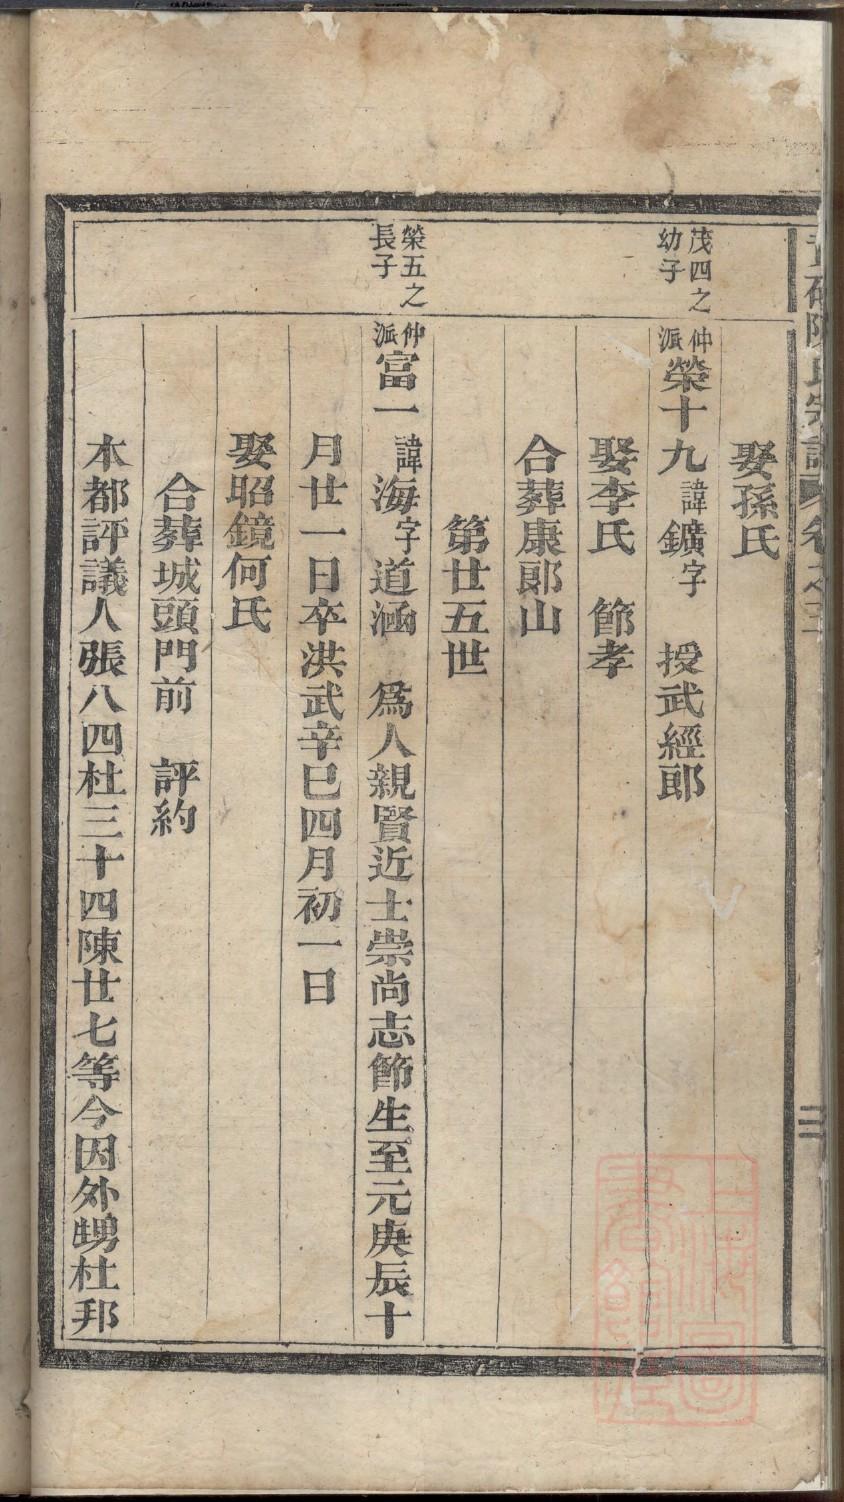 陳氏宗譜 卷之三
娶孫氏
茂四之
幼子
仲派榮十九諱鑛字 授武經郎
娶李氏 節孝
合葬康郎山
第廿五世
榮五之
長子
仲派富一諱海字道涵 爲人親賢近士崇尚志節生至元庚辰十
月廿一日卒洪武辛巳四月初一日
娶昭鏡何氏
合葬城頭門前 評約
本都評議人張八四杜三十四陳廿七等今因外甥杜邦